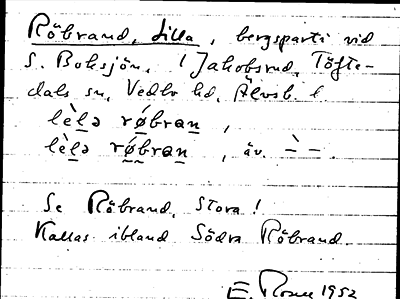 Röbrand, Lilla, bergsparti vid
S. Boksjön, i Jakobsrud, Töfte-
dals sn, Vedbo hd, Älvsb. l.
lèlə rǿbran,
lèlə rǿbran, äv. –̀ –.
Se Röbrand, Stora!
Kallas ibland Södra Röbrand.
E. 1952